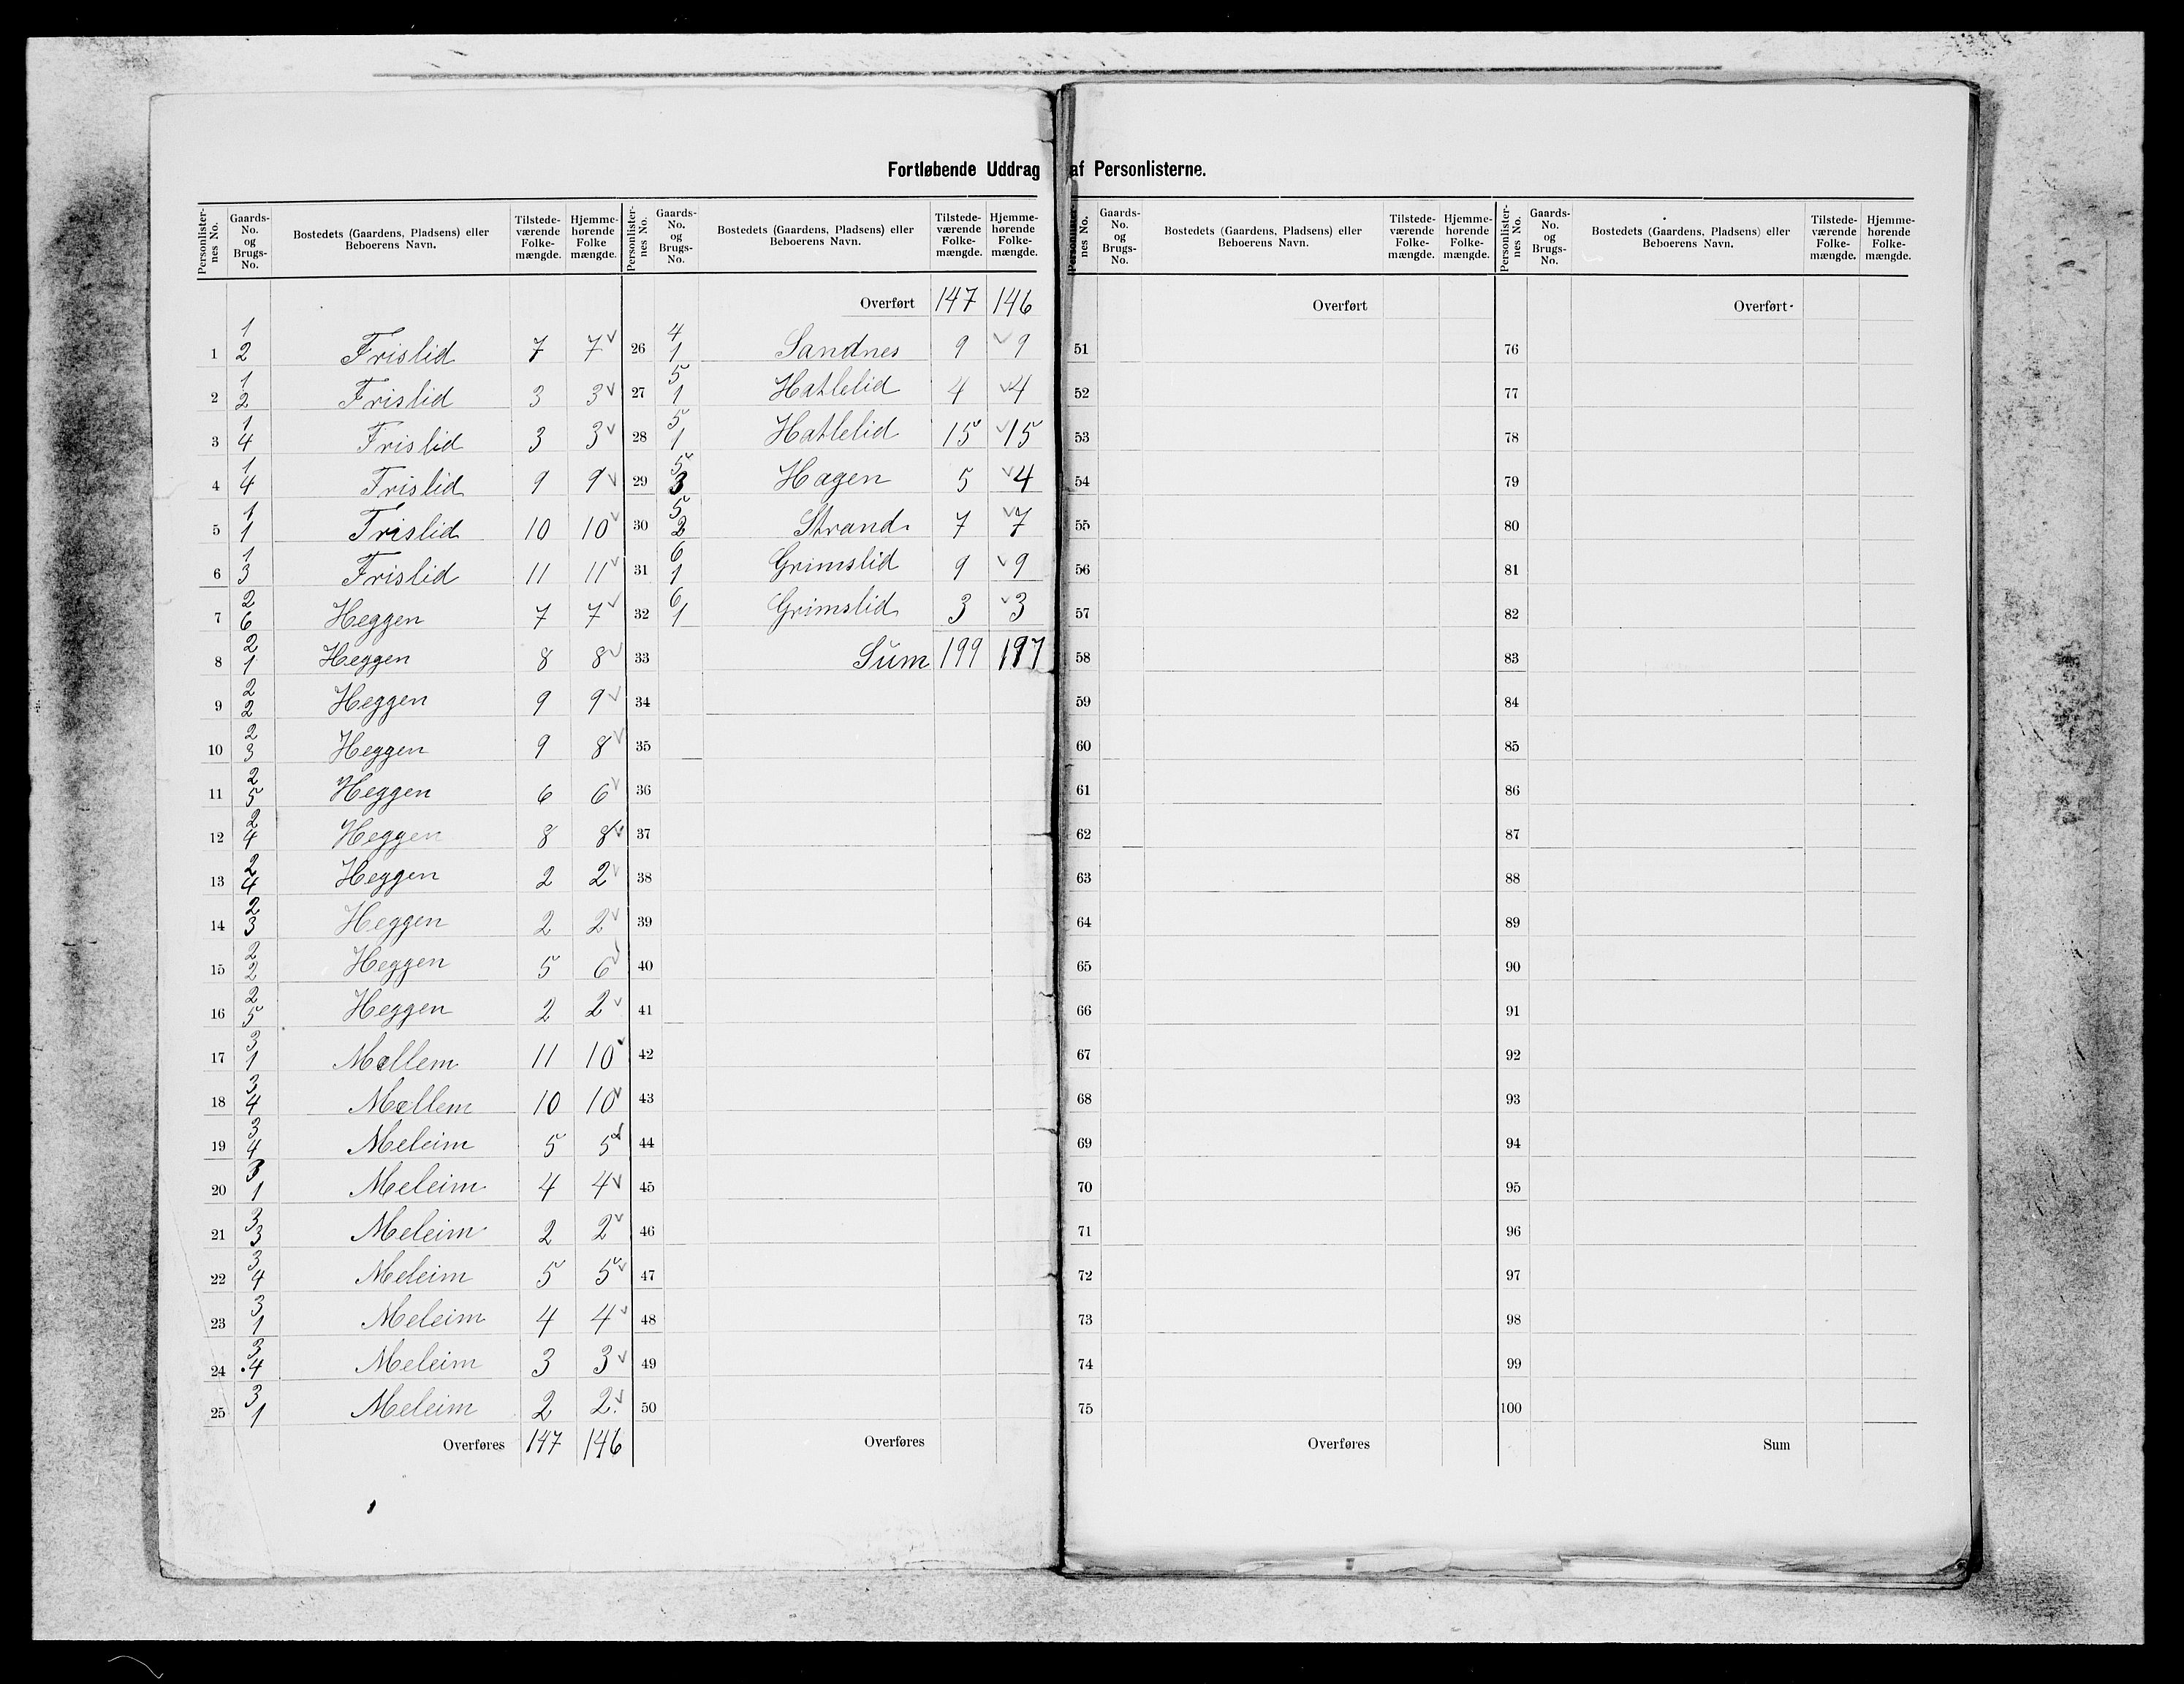 Fortløbende Uddrag af Personlisterne.
Personlisternes No. | Gaards-No. og Brugs-No. | Bostedets (Gaardens, Pladsens) eller Beboerens Navn. | Tilstedeværende Folkemængde. | Hjemmehørende Folke mængde.
1 | 1 2 | Frislid | 7 | 7 ✓
2 | 1 2 | Frislid | 3 | 3 ✓
3 | 1 4 | Frislid | 3 | 3 ✓
4 | 1 4 | Frislid | 9 | 9 ✓
5 | 1 1 | Frislid | 10 | 10 ✓
6 | 1 3 | Frislid | 11 | 11 ✓
7 | 2 6 | Heggen | 7 | 7 ✓
8 | 2 1 | Heggen | 8 | 8 ✓
9 | 2 2 | Heggen | 9 | 9 ✓
10 | 2 3 | Heggen | 9 | 8 ✓
11 | 2 5 | Heggen | 6 | 6 ✓
12 | 2 4 | Heggen | 8 | 8 ✓
13 | 2 4 | Heggen | 2 | 2 ✓
14 | 2 3 | Heggen | 2 | 2 ✓
15 | 2 2 | Heggen | 5 | 6 ✓
16 | 2 5 | Heggen | 2 | 2 ✓
17 | 3 1 | Mellem | 11 | 10 ✓
18 | 3 4 | Mellem | 10 | 10 ✓
19 | 3 4 | Meleim | 5 | 5 ✓
20 | 3 1 | Meleim | 4 | 4 ✓
21 | 3 3 | Meleim | 2 | 2 ✓
22 | 3 4 | Meleim | 5 | 5 ✓
23 | 3 1 | Meleim | 4 | 4 ✓
24 | 3 4 | Meleim | 3 | 3 ✓
25 | 3 1 | Meleim | 2 | 2 ✓
Overføres | 147 | 146
Personlisternes No. | Gaards-No. og Brugs-No. | Bostedets (Gaardens, Pladsens) eller Beboerens Navn. | Tilstedeværende Folkemængde. | Hjemmehørende Folkemængde.
Overført | 147 | 146
26 | 4 1 | Sandnes | 9 | ✓ 9
27 | 5 1 | Hatlelid | 4 | ✓ 4
28 | 5 1 | Hatlelid | 15 | ✓ 15
29 | 5 3 | Hagen | 5 | ✓ 4
30 | 5 2 | Strand | 7 | ✓ 7
31 | 6 1 | Grimslid | 9 | ✓ 9
32 | 6 1 | Grimslid | 3 | ✓ 3
33 | Sum | 199 | 197
34
35
36
37
38
39
40
41
42
43
44
45
46
47
48
49
50
Overføres
Personlisternes No. | Gaards-No. og Brugs-No. | Bostedets (Gaardens, Pladsens) eller Beboerens Navn. | Tilstedeværende Folkemængde. | Hjemmehørende Folkemængde.
Overført
51
52
53
54
55
56
57
58
59
60
61
62
63
64
65
66
67
68
69
70
71
72
73
74
75
Overføres
Personlisternes No. | Gaards-No. og Brugs-No. | Bostedets (Gaardens, Pladsens) eller Beboerens Navn. | Tilstedeværende Folkemængde. | Hjemmehørende Folkemængde.
Overført
76
77
78
79
80
81
82
83
84
85
86
87
88
89
90
91
92
93
94
95
96
97
98
99
100
Sum